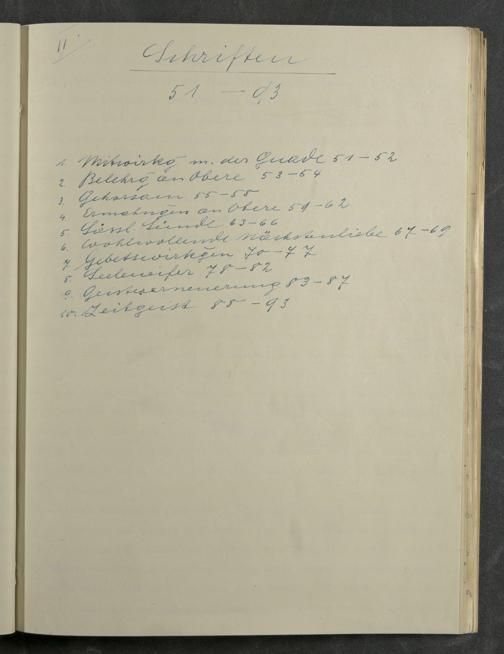 II.
Schriften
51 – 93
1. Mitwirkg m. der Gnade 51–52
2. Belehrg an Obere 53–54
3. Gehorsam 55–58
4. Ermahngen an Obere 59–62
5. Lässl. Sünde 63–66
6. Wohlwollende Nächstenliebe 67–69
7. Gebetswirkgen 70–77
8. Seeleneifer 78–82
9. Geisteserneuerung 83–87
10. Zeitgeist 88–93